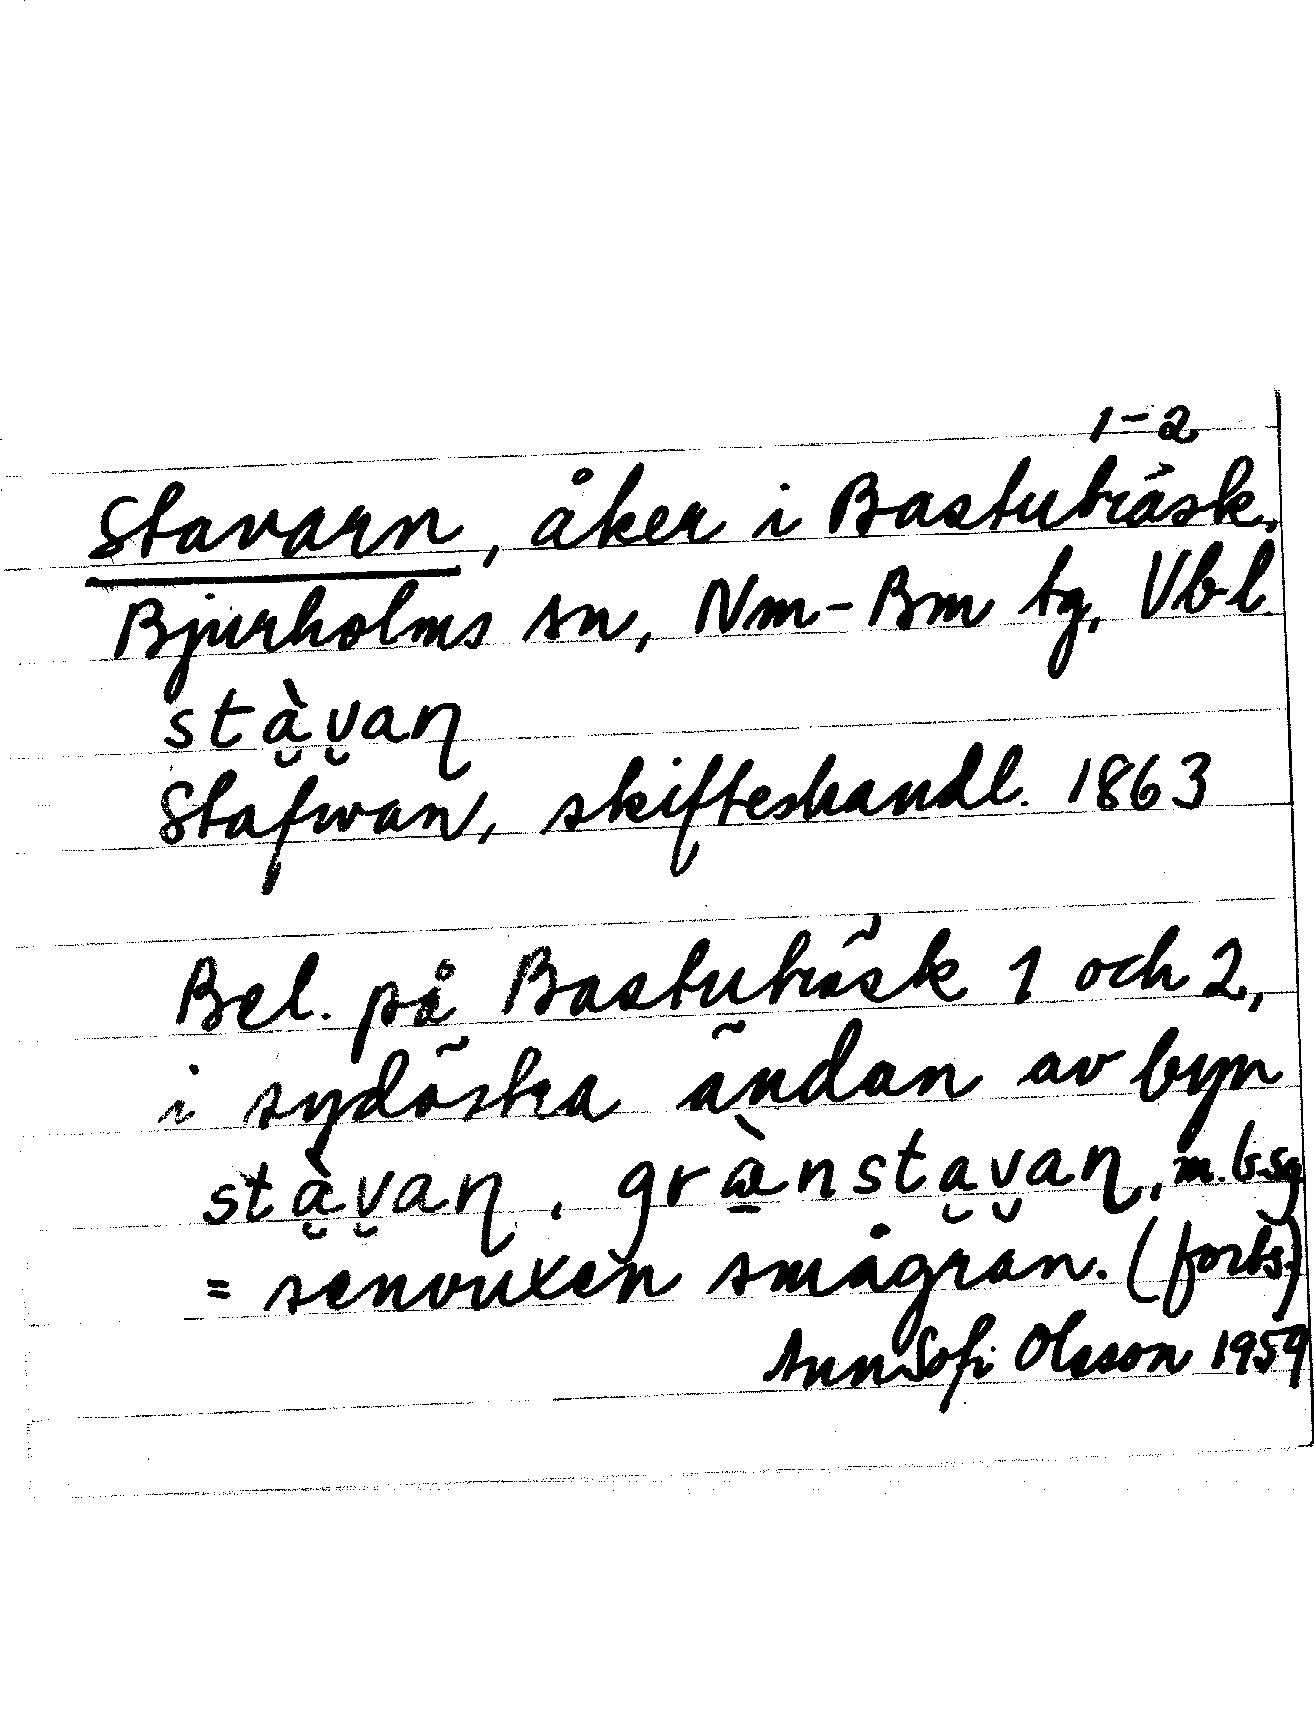 1-2
Stavarn, åker i Bastuträsk,
Bjurholms sn, Nm-Bm tg, Vb l
stà̮v̮aɳ
Stafwan, skifteshandl. 1863
Bel. på Bastuträsk 1 och 2,
i sydöstra ändan av byn
stà̮v̮aɳ, græ̀nsta̮v̮aɳ, m. b. sg
= senvuxen smågran. (forts.)
Ann Sofi Olsson 1959